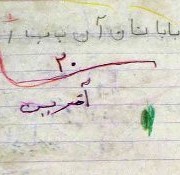 بابا نان آن ب ب ا
۲۰
آفرین